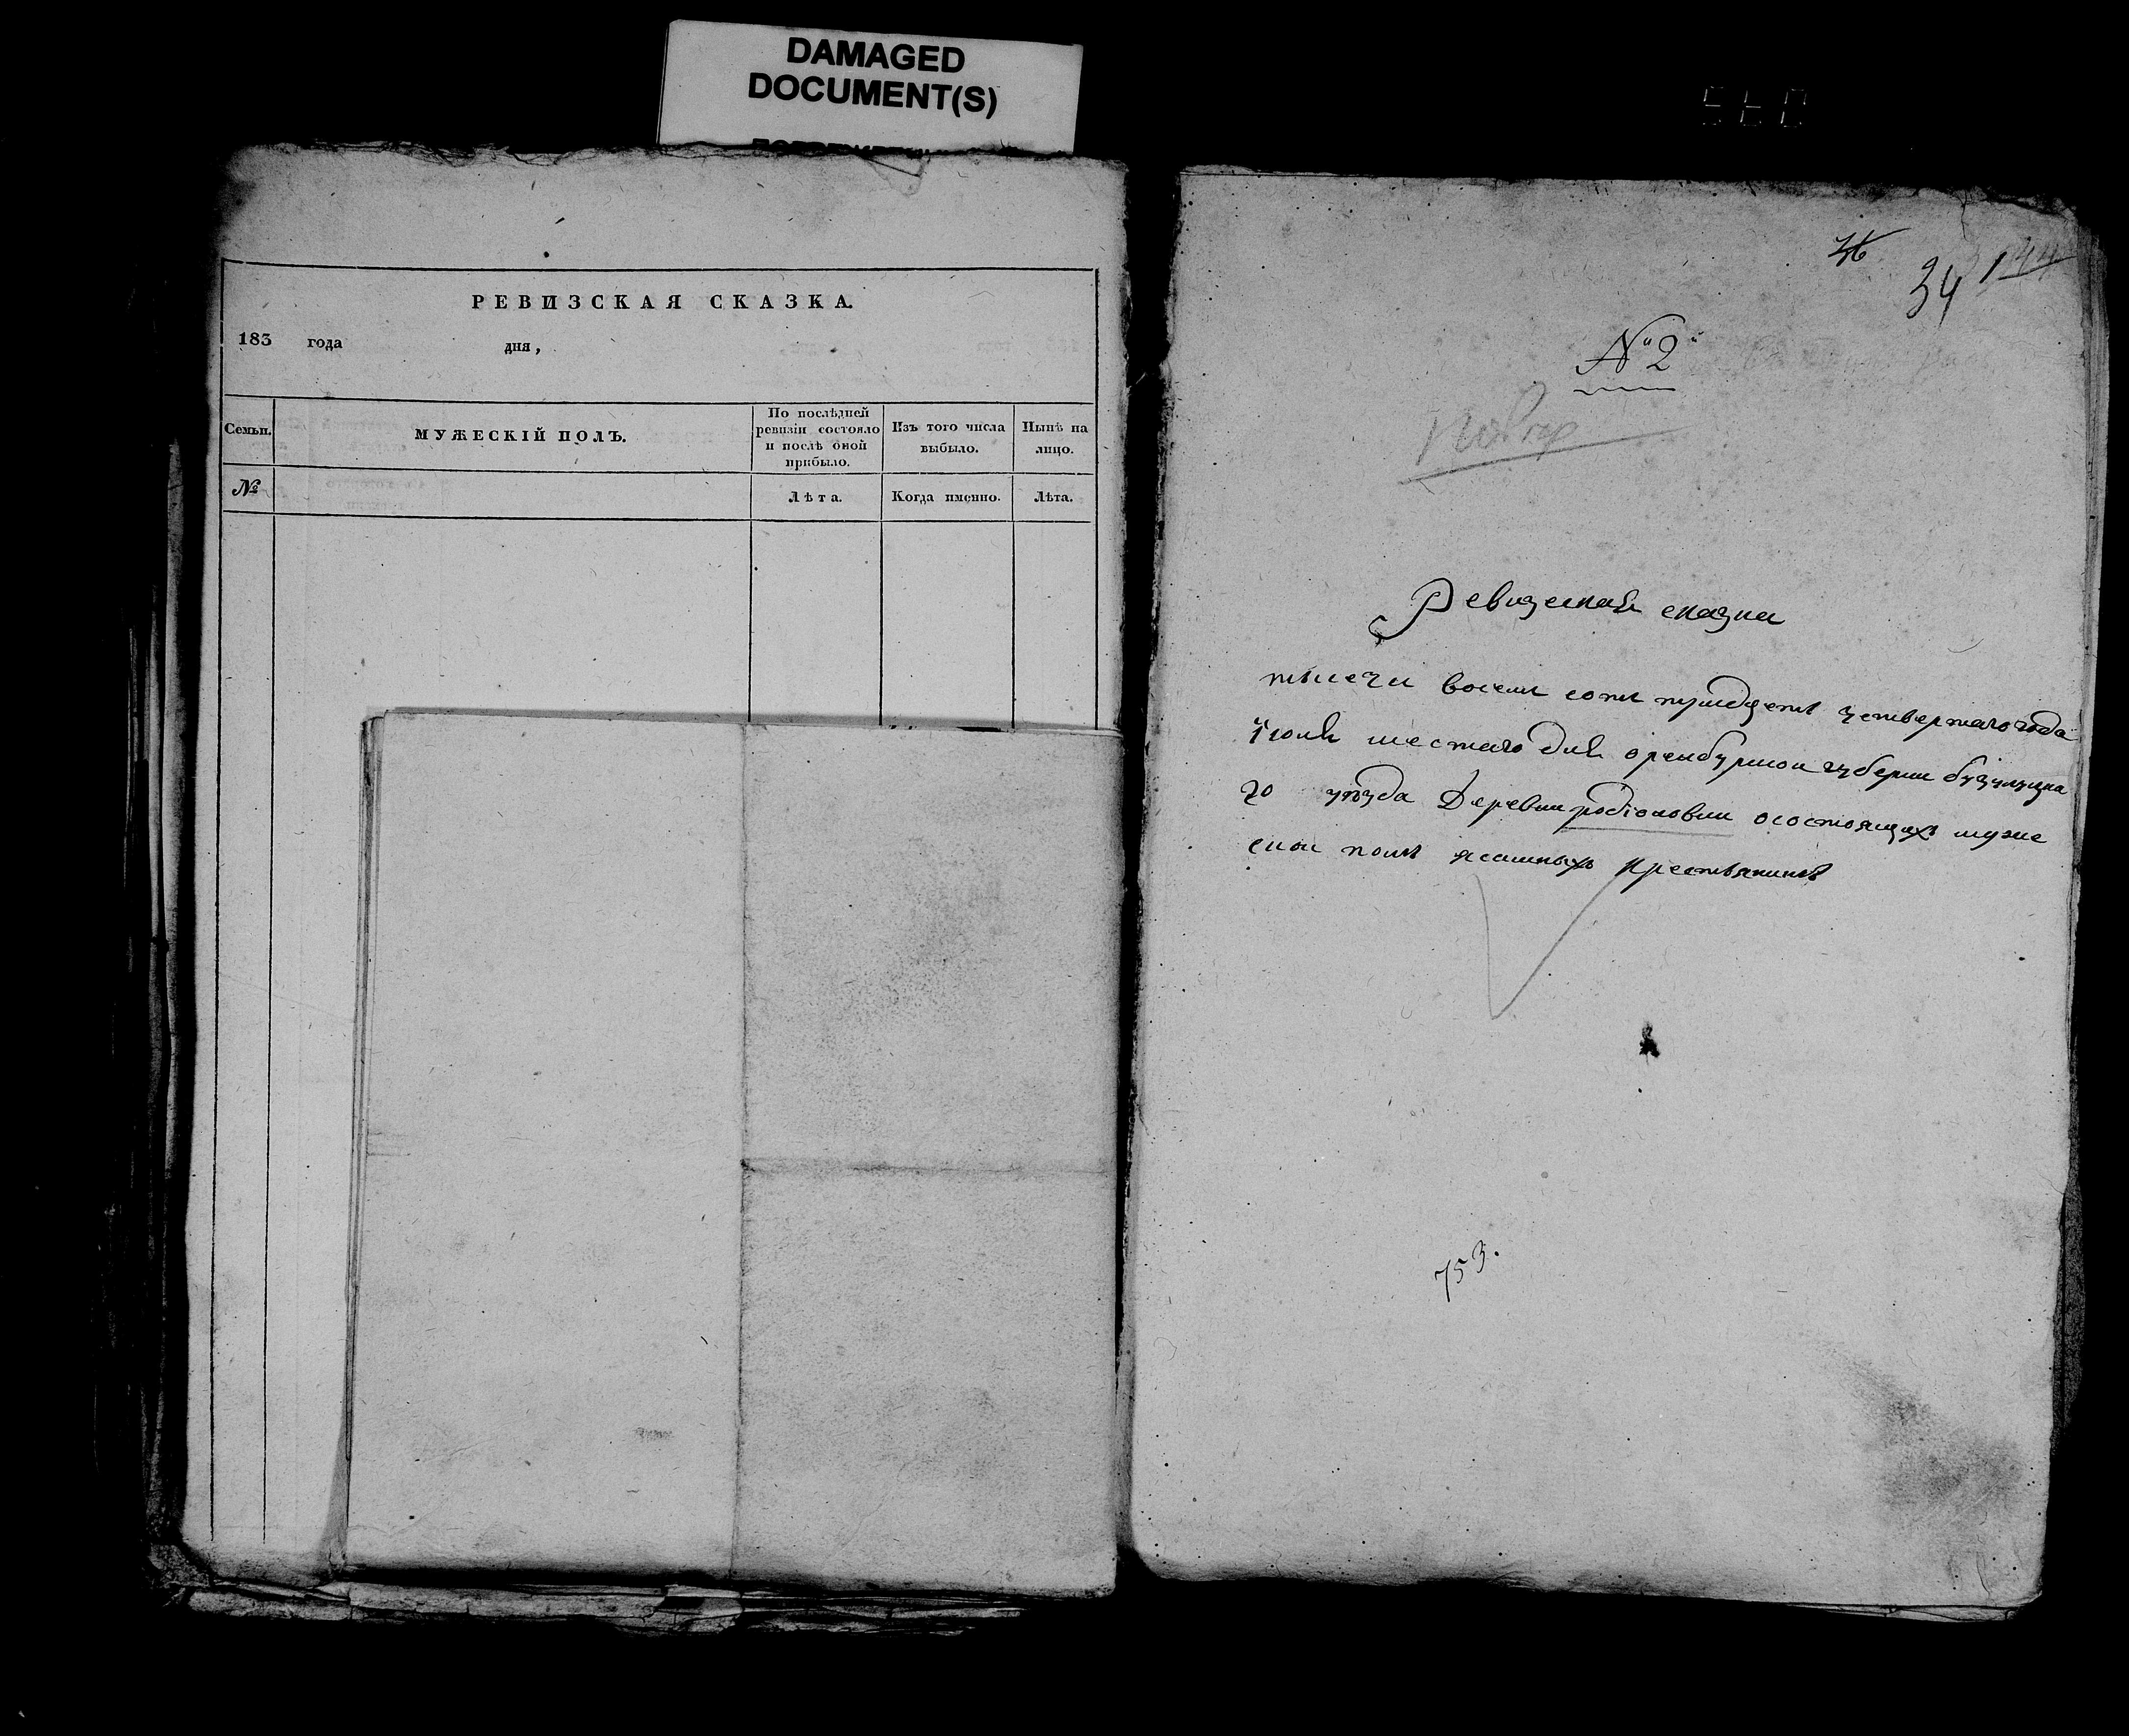 DAMAGED
DOCUMENT(S)
РЕВИЗСКАЯ СКАЗКА.
183 года дня,
Семьи.
МУЖЕСКІЙ ПОЛЪ.
По послѣдней
ревизіи состояло
и послѣ оной
прибыло.
Изъ того числа
выбыло.
Нынѣ на
лицо.
№
Лѣта.
Когда именно.
Лѣта.
36
34
144
№ 2
Ревизская сказка
тысечи восемь сотъ тридцеть четвертаго года
июля шестаго дня оренбургкои губерни бузулуцка
го уѣзда Деревни родіоновки осостоящихъ муже
скои полъ ясашныхъ крестьянинъ
753.